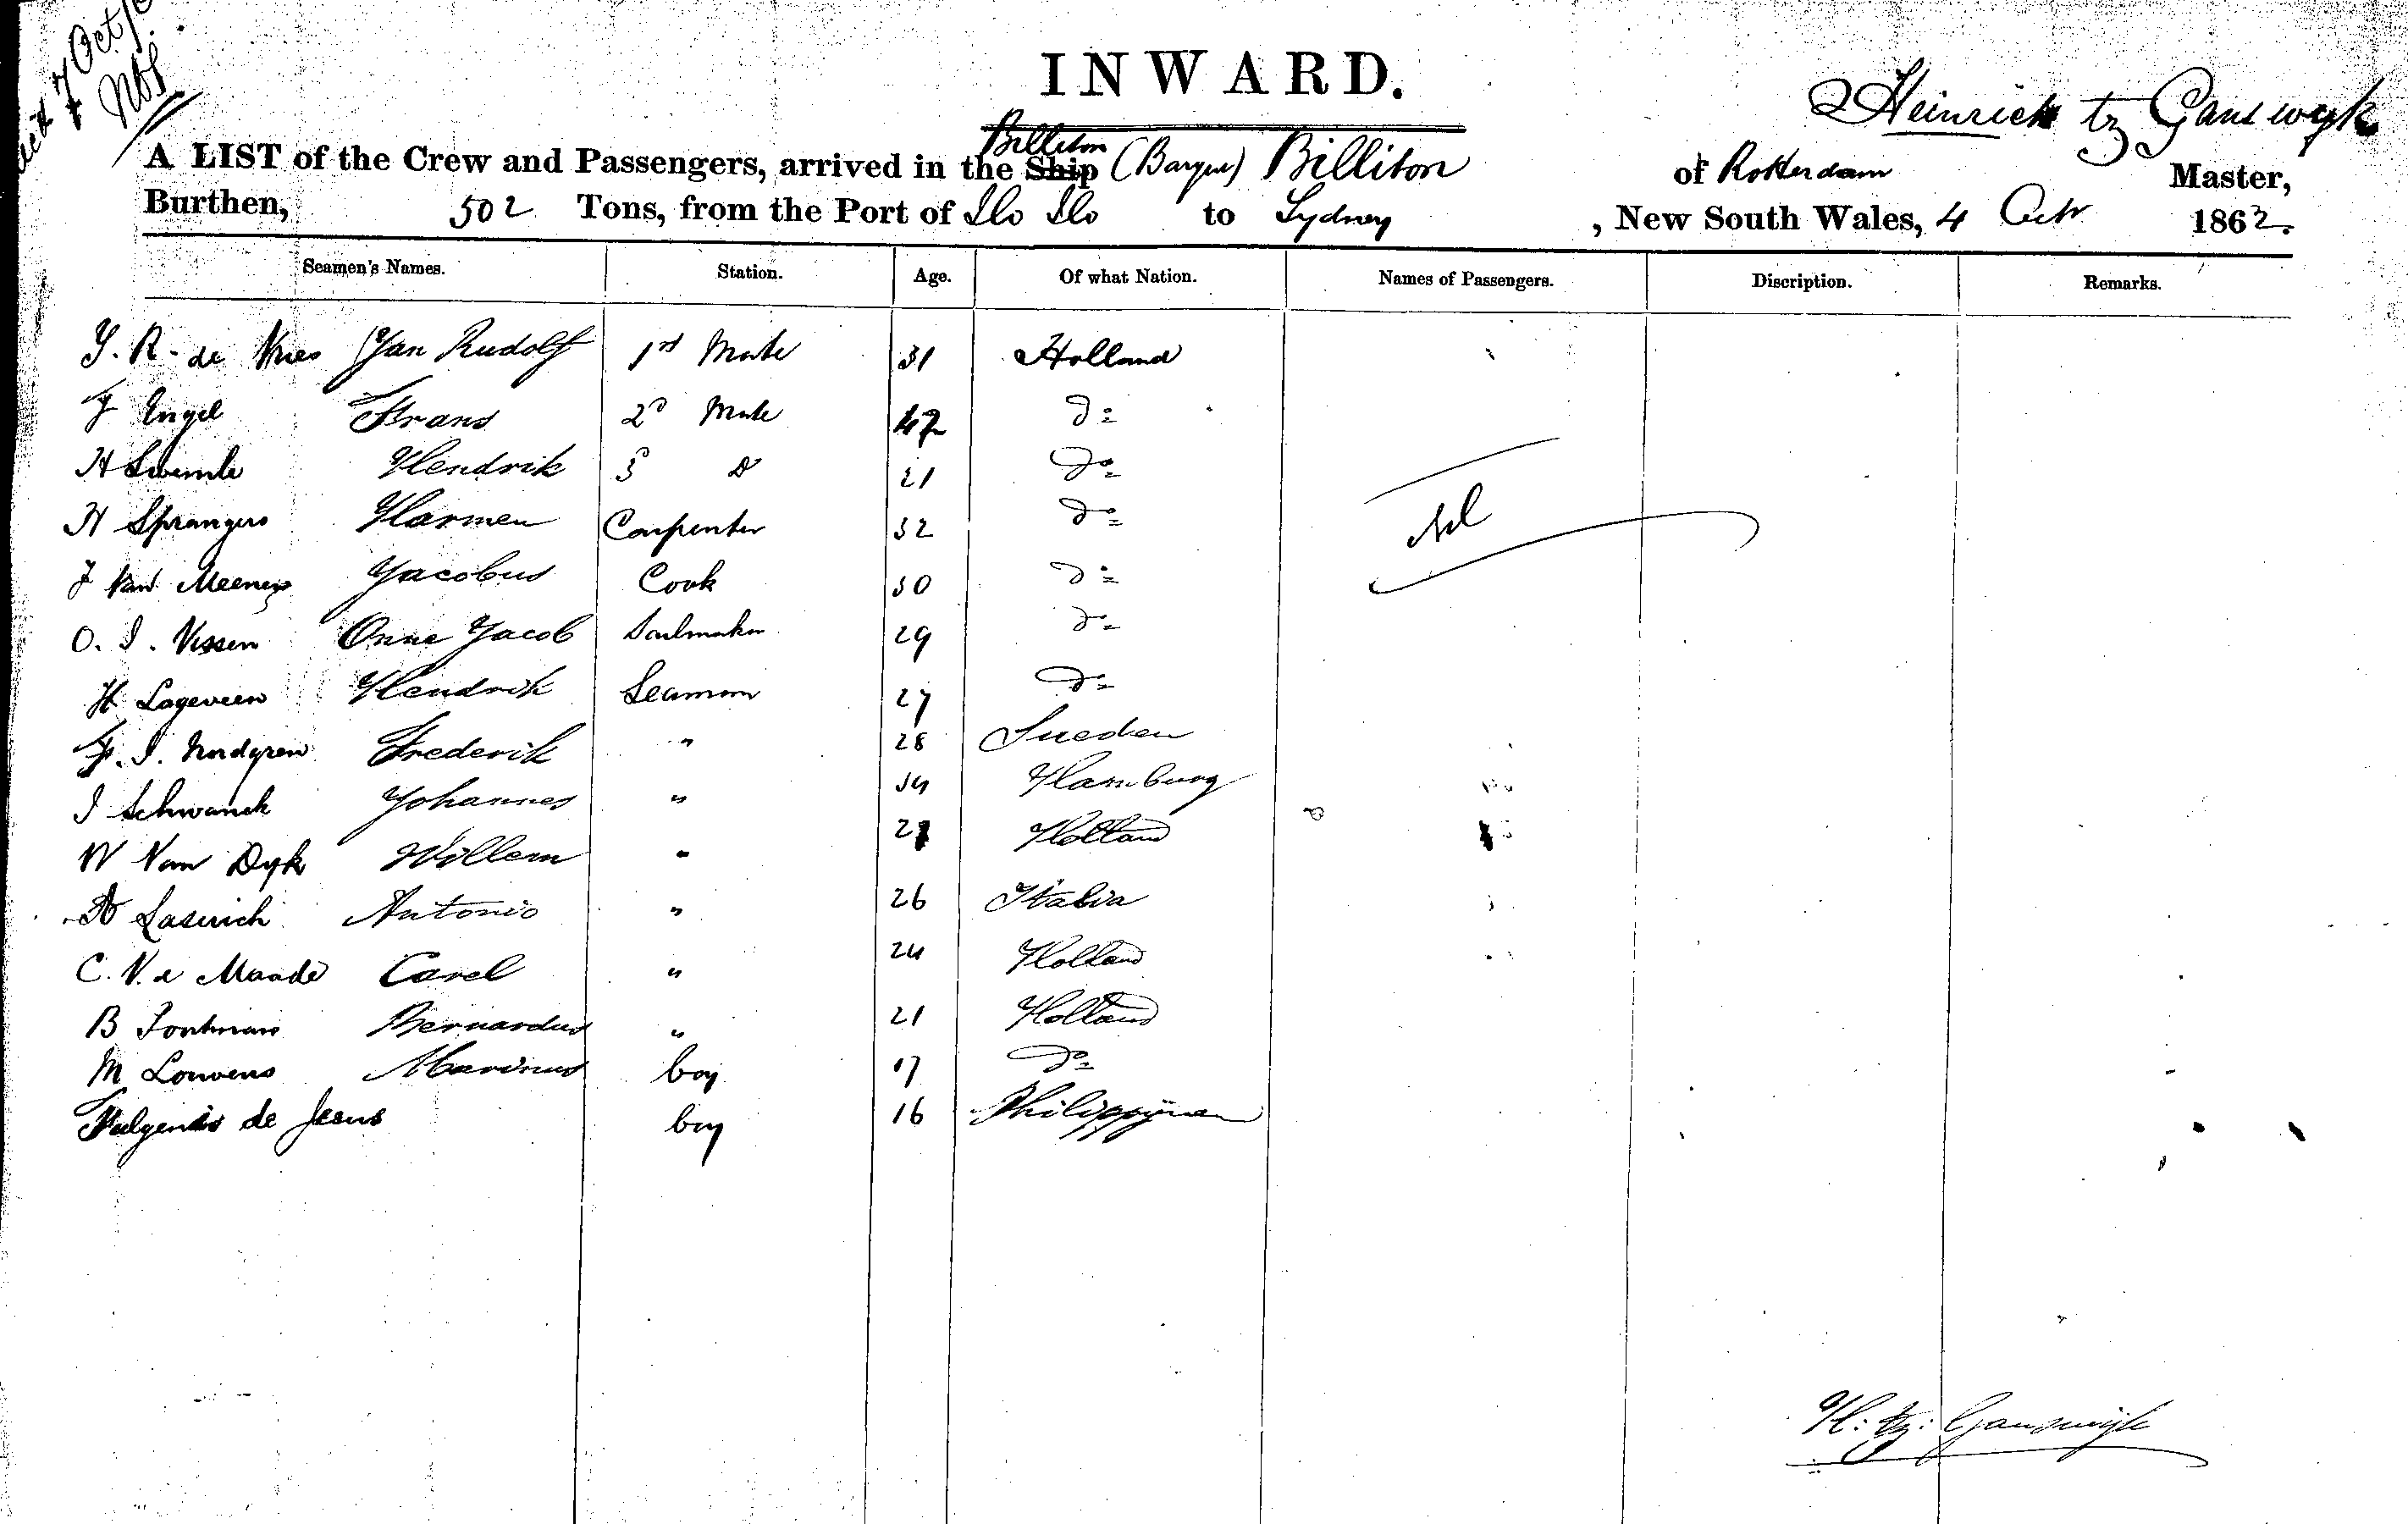 7 Oct
INWARD.
Heinrich tz Ganswyk
Billiton
A LIST of the Crew and Passengers, arrived in the Ship (Barque) Billiton of Rotterdam Master,
Burthen, 502 Tons, from the Port of Ilo Ilo to Sydney , New South Wales, 4 Octr 1862.
Seamen's Names. Station. Age. Of what Nation. Names of Passengers. Discription. Remarks.
J. R. de Vries Jan Rudolf 1st Mate 31 Holland
F Engel Frans 2d Mate 42 Do
H Hendrik 3 Do 21 Do
H Sprangers Harmen Carpenter 32 Do
J Van Meenen Jacobus Cook 30 Do
O. J. Visser Onne Jacob Sailmaker 29 Do
H Lageveen Hendrik Seaman 27 Do
F. J. Nordgren Frederik " 28 Sueden
J Schwanck Johannes " 34 Hamburg
W Van Dyk Willem " 2 Holland
A Antonio " 26 Italia
C. V. d Maade Carel " 24 Holland
B Bernardus " 21 Holland
M Louwens Marinus boy 17 Do
Fulgencio de Jesus boy 16 Philippijnen
Nil
H: tz: Ganswijk